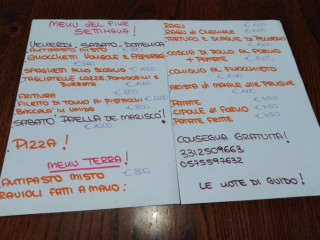 MENU DEL FINE
SETTIMANA!
VENERDI - SABATO - DOMENICA
ANTIPASTO MISTO
GNOCCHETTI VONGOLE E ASPARAGI
SPAGHETTI ALLO SCOGLIO
TAGLIATELLE COZZE, POMODORINI E
BURRATA
FRITTURA
FILETTO DI TONNO AI PISTACCHI
E BALSAMICO
SABATO PAELLA DE MARISCO!
PIZZA!
MENU TERRA!
ANTIPASTO MISTO
RAVIOLI FATTI A MANO:
RAGU
RAGU DI CINGHIALE
TARTUFO E SCAGLIE DI PECORINO
COSCIA DI POLLO AL FORNO
+ PATATE
CONIGLIO AL FINOCCHIETTO
ARISTA DI MAIALE ALLE PRUGNE
PATATE
CIPOLLE AL FORNO
PATATE FRITTE
CONSEGNA GRATUITA!
3312509663
0575597632
LE NOTE DI GUIDO!